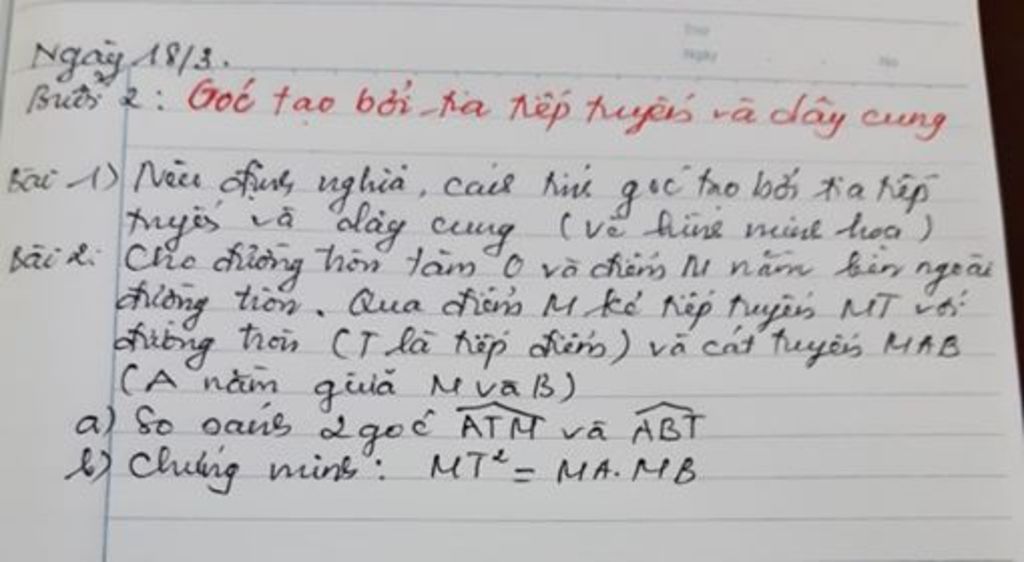 Ngày 18/3.
Buổi 2: Góc tạo bởi tia tiếp tuyến và dây cung
Bài 1) Nêu định nghĩa, cách tính góc tạo bởi tia tiếp
tuyến và dây cung (vẽ hình minh họa)
Bài 2: Cho đường tròn tâm O và điểm M nằm bên ngoài
đường tròn. Qua điểm M kẻ tiếp tuyến MT với
đường tròn (T là tiếp điểm) và cát tuyến MAB
(A nằm giữa M và B)
a) So sánh 2 góc ATM và ABT
b) Chứng minh: MT² = MA.MB